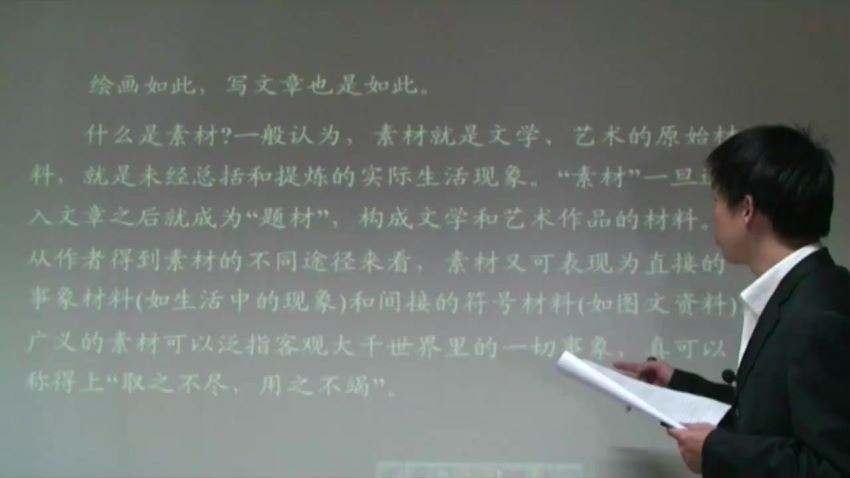 绘画如此，写文章也是如此。
什么是素材?一般认为，素材就是文学、艺术的原始材
料，就是未经总括和提炼的实际生活现象。“素材”一旦
入文章之后就成为“题材”，构成文学和艺术作品的材料。
从作者得到素材的不同途径来看，素材又可表现为直接的
事象材料(如生活中的现象)和间接的符号材料(如图文资料)
广义的素材可以泛指客观大千世界里的一切事象，真可以
称得上“取之不尽，用之不竭”。